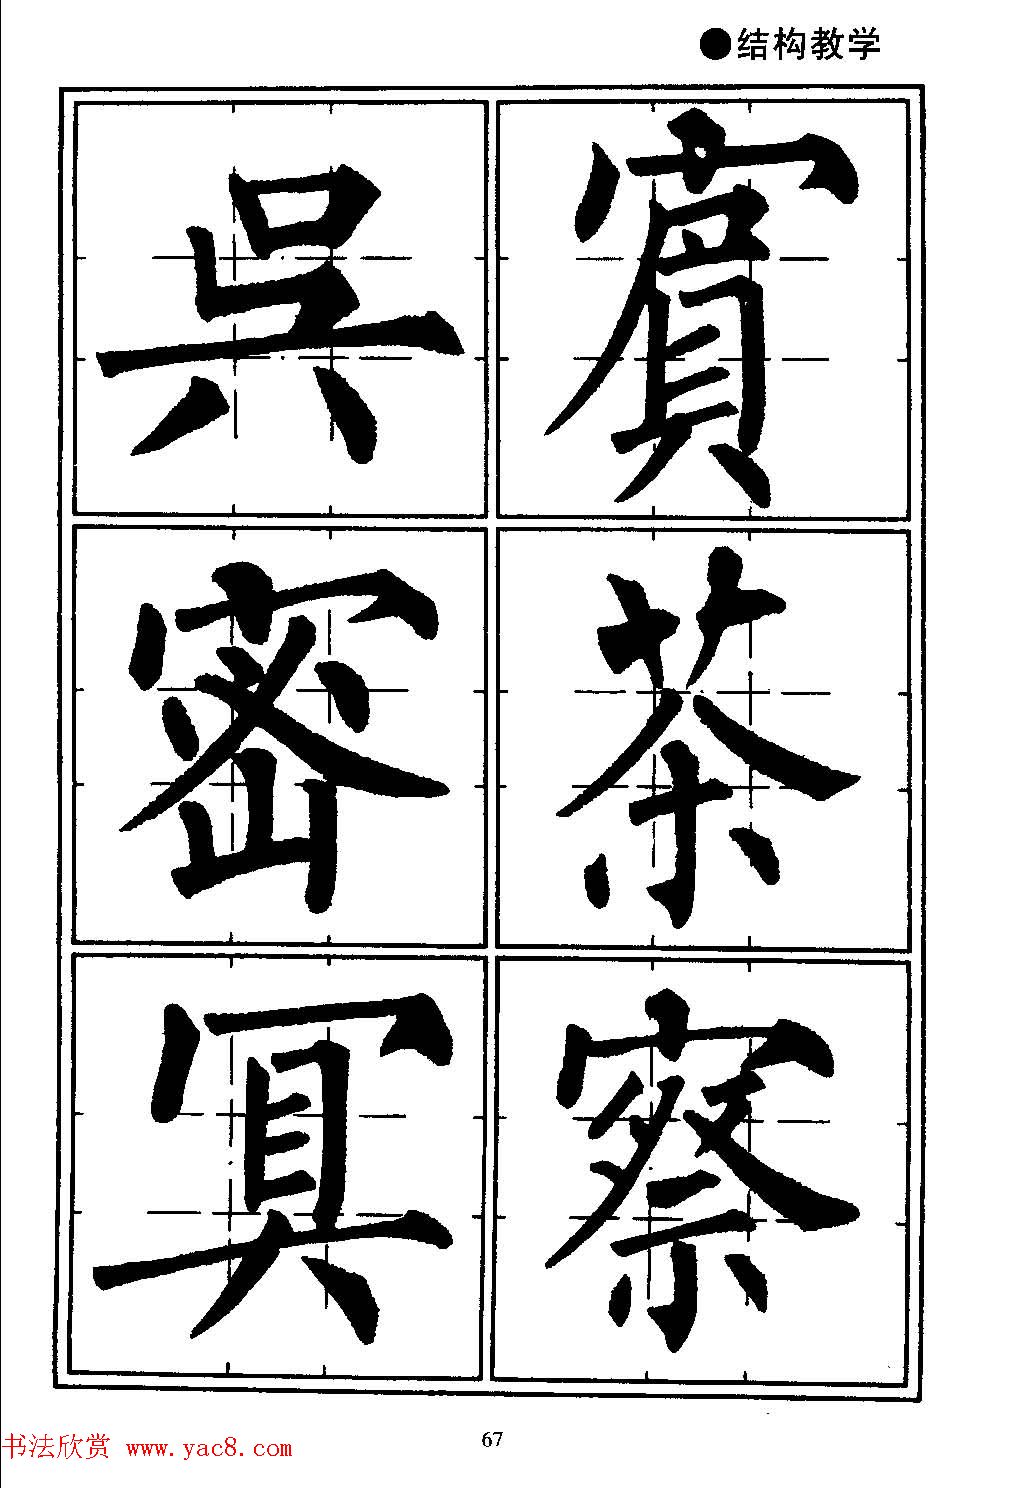 ●结构教学
吳 賓
密 茶
冥 察
67
书法欣赏 www.yac8.com